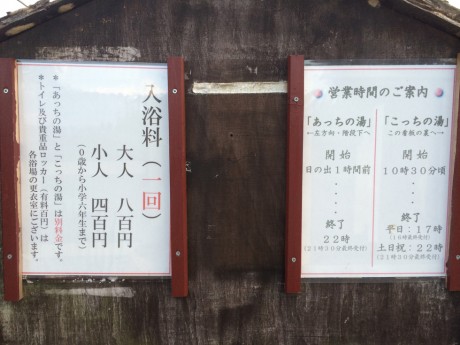 入浴料（一回）
大人　八百円
小人　四百円
（０歳から小学六年生まで）
＊「あっちの湯」と「こっちの湯」は別料金です。
＊トイレ及び貴重品ロッカー（有料百円）は
各浴場の更衣室にございます。
営業時間のご案内
「あっちの湯」
←左方向・階段下へ
開始
日の出１時間前
・
・
・
終了
２２時
（２１時３０分最終受付）
「こっちの湯」
この看板の裏へ→
開始
１０時３０分頃
・
・
・
終了
平日：１７時
（１６時最終受付）
土日祝：２２時
（２１時３０分最終受付）